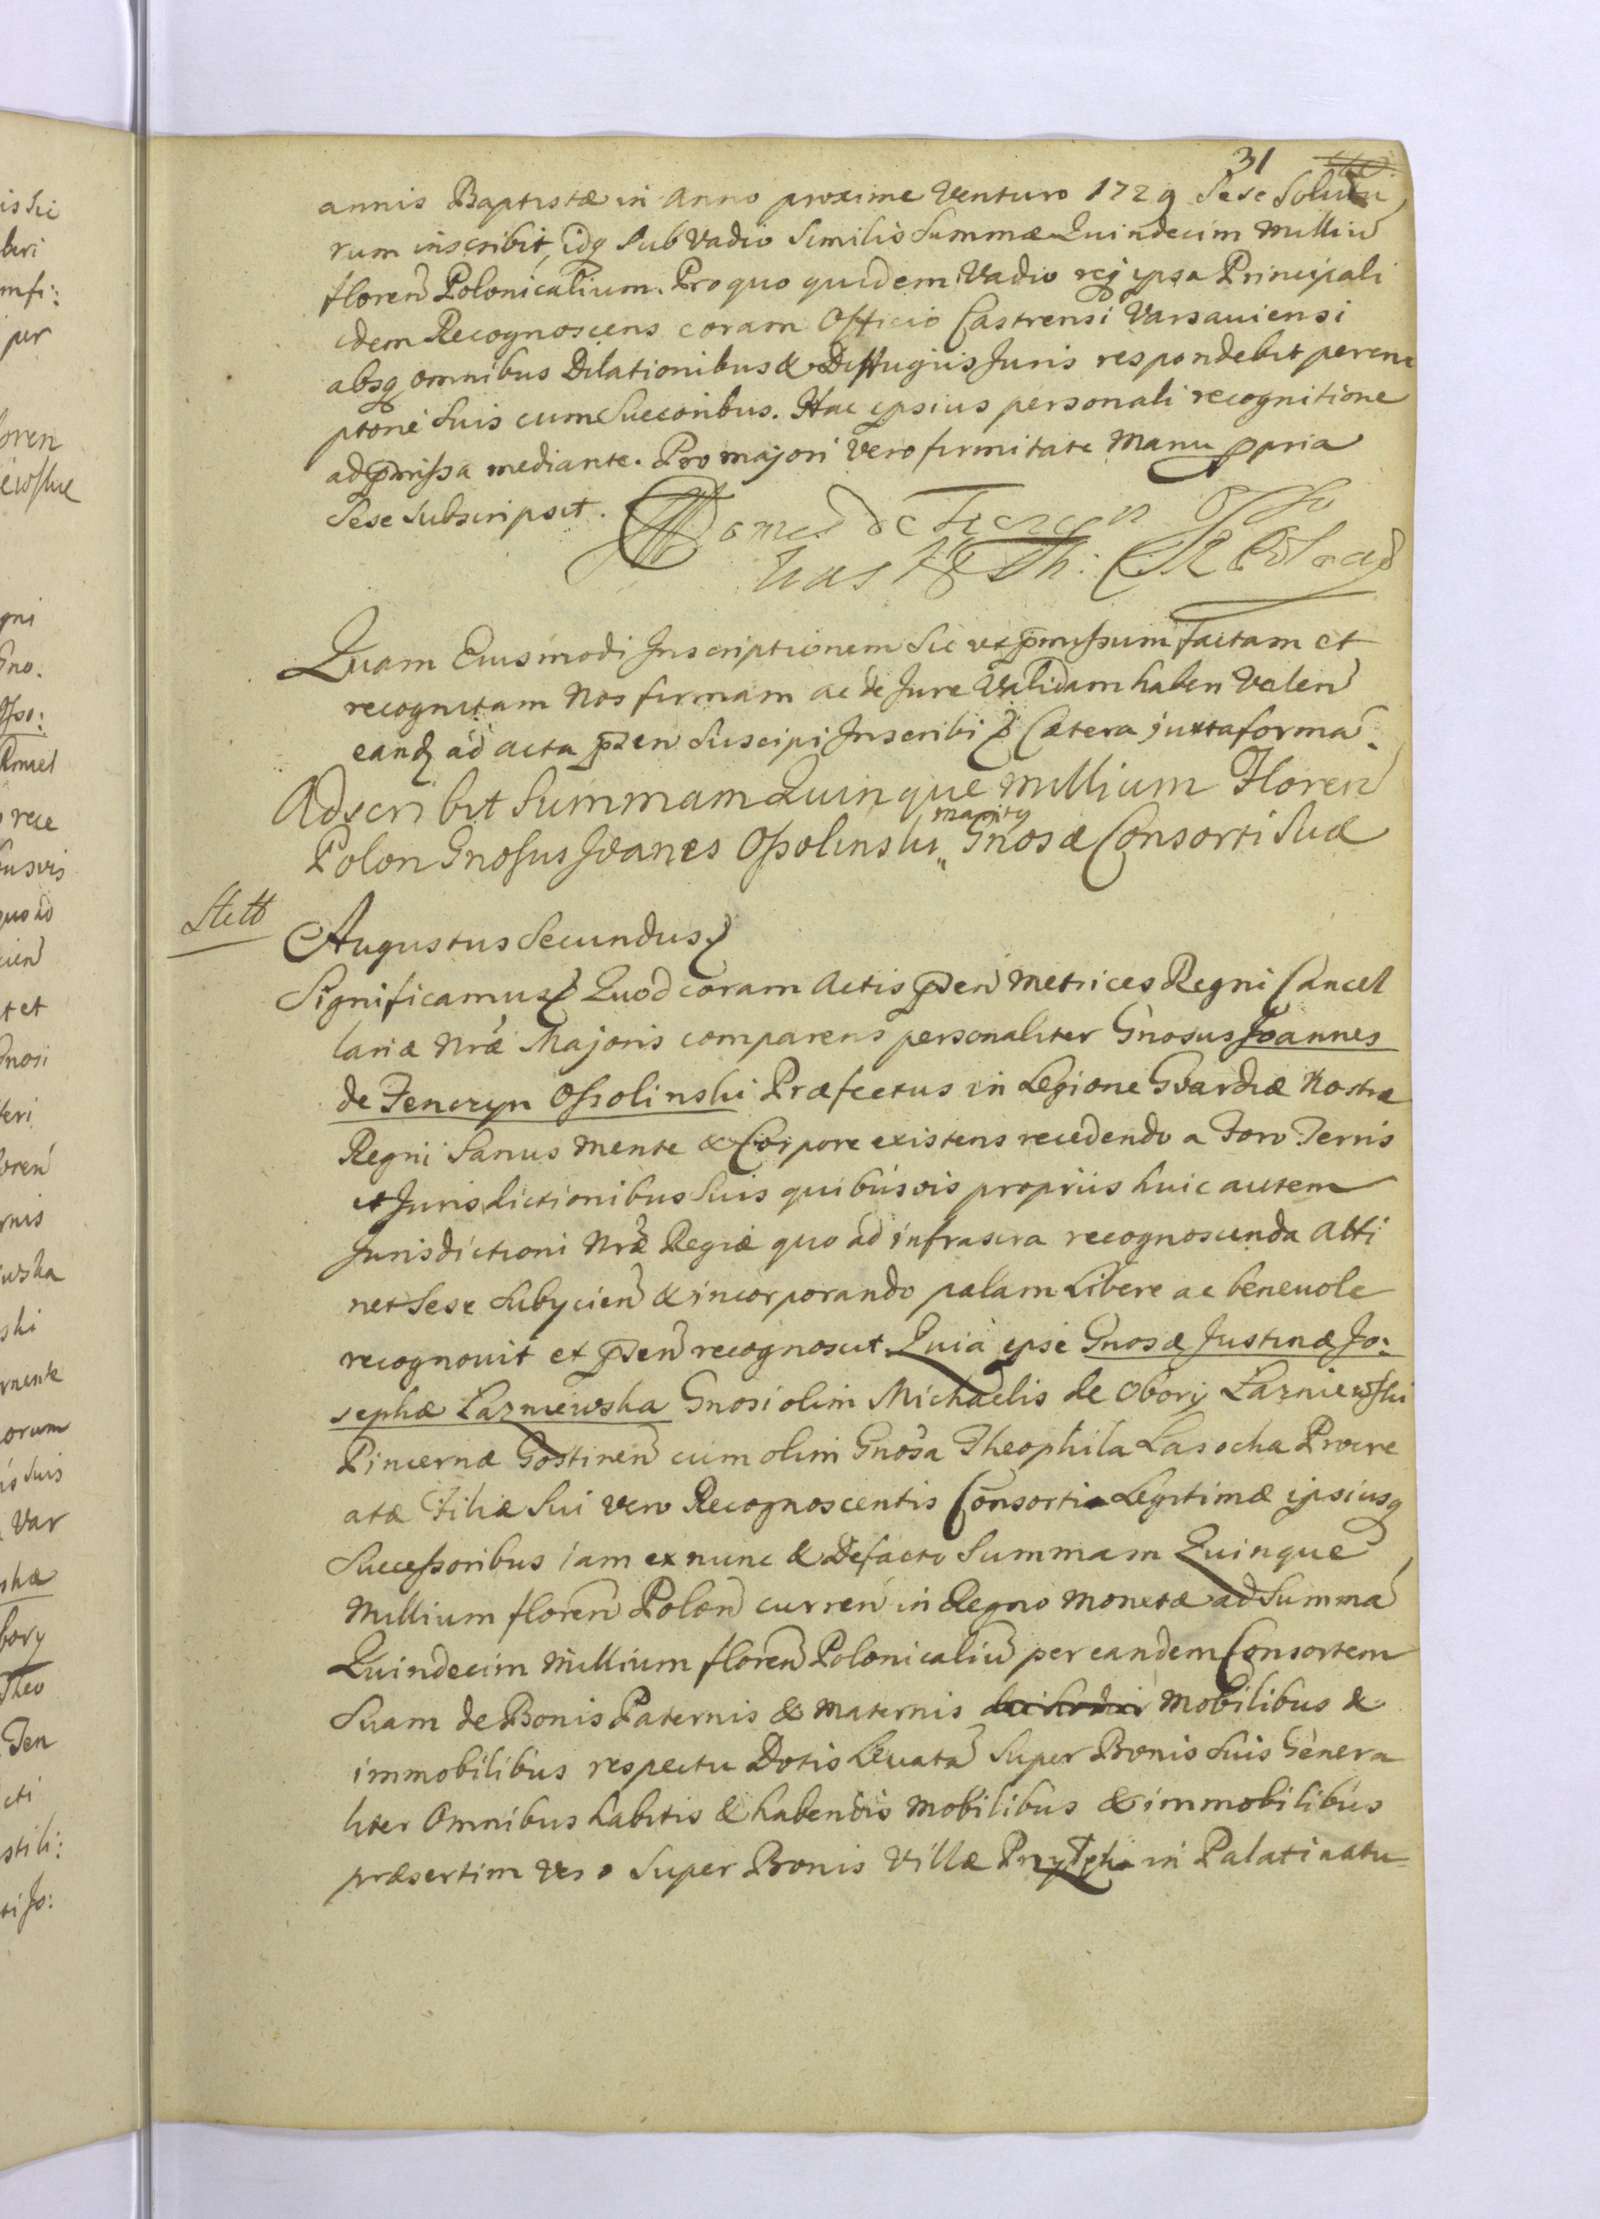 31
annis Baptistæ in Anno proxime Venturo 1729 Sese Solutu
rum inscribit, idq Sub Vadio Similis Summæ Quindecim Milliū
floreñ Polonicalium. Pro quo quidem Vadio reqȝ ipsa Principali
idem Recognoscens coram Officio Castrensi Varsauiensi
absq omnibus Dilationibus & Diffugijs Juris respondebit perem
ptorie Suis cum Succoribus. Hac ipsius personali recognitione
ad p̄missa mediante. Pro majori Vero firmitate Manu ppria
Sese Subscripsit.
Quam Eiusmodi Inscriptionem Sic ut p̄missum factam et
recognitam Nos firmam ac de Jure Validam haberi Volen̄
eandȝ ad Acta p̄sen Suscipi Inscribi & Cætera juxta formā.
Adscribit Summam Quinque Millium Floreñ
Polon Gnosus Joanes Ossolinski maritȝ Gnosæ Consorti Suæ
Augustus Secundus &
Significamus & Quod coram Actis p̄sen̄ Metrices Regni Cancel
lariæ Nræ Majoris comparens personaliter Gnosus Joannes
de Tenczyn Ossolinski Præfectus in Legione Gvardiæ Nostræ
Regni Sanus Mente & Corpore existens recedendo a Foro Terris
et Jurisdictionibus Suis quibusvis proprijs huic autem
Jurisdictioni Nræ Regiæ quo ad infrascra recognoscenda atti
net Sese Subijcien̄ & incorporando palam Libere ac beneuole
recognouit et p̄sen̄ recognoscit. Quia ipse Gnosæ Justinæ Jo:
sephæ Lazniewska Gnosi olim Michaelis de Obory Lazniewski
Pincernæ Gostinen̄ cum olim Gnosa Theophila Lasocka Procre
atæ Filiæ Sui vero Recognoscentis Consorti Legitimæ ipsiusq
Successoribus iam ex nunc & Defacto Summam Quinque
Millium floreñ Polon̄ curreñ in Regno Monetæ ad Summā
Quindecim Millium floreñ Polonicaliū per eandem Consortem
Suam de Bonis Paternis & Maternis Mobilibus &
immobilibus respectu Dotis Leuatā Super Bonis Suis Genera
liter Omnibus habitis & habendis Mobilibus & immobilibus
præsertim Vero Super Bonis Villæ in Palatinatu